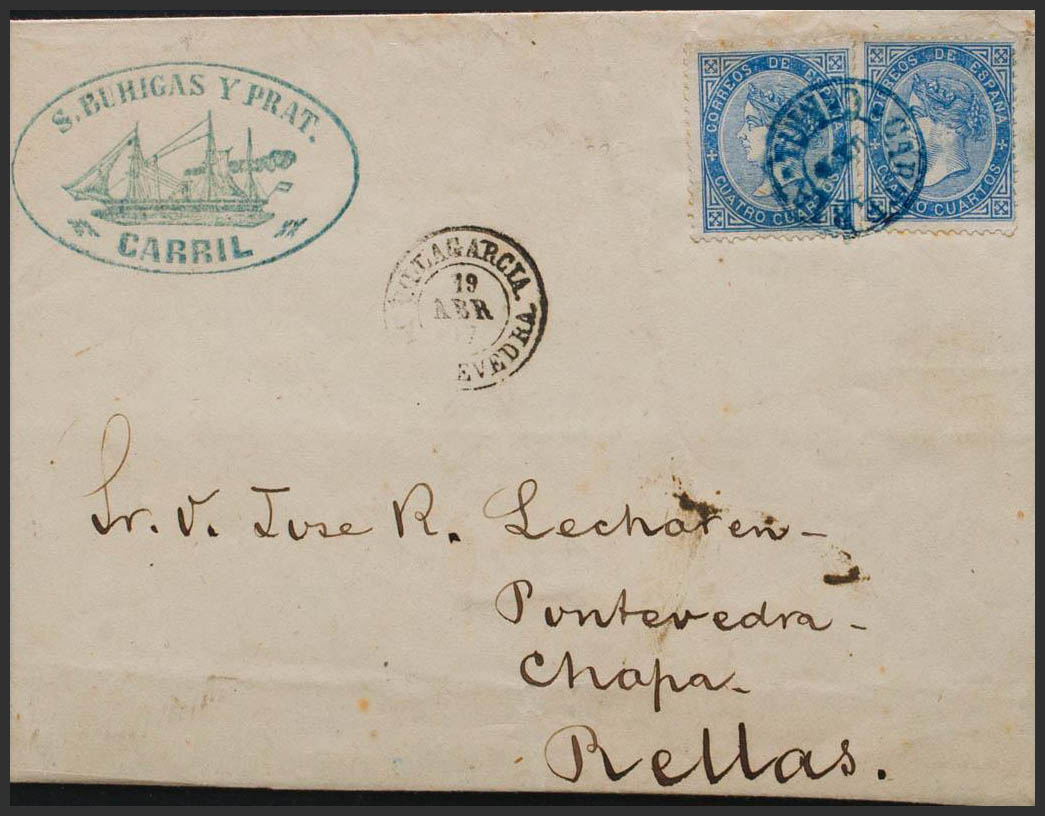 S. BUHIGAS Y PRAT.
CARRIL
CORREOS DE ESP
CUATRO CUARTOS
CORREOS DE ESPAÑA
CUATRO CUARTOS
VILLAGARCIA.
19
ABR
7
EVEDRA.
Sr. D. Jose R. Lecharen -
Pontevedra -
Chapa -
Rellas.